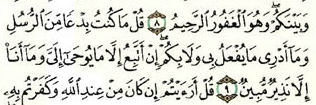 وَبَيْنَكُمْ ۖ وَهُوَ ٱلْغَفُورُ ٱلرَّحِيمُ ٨ قُلْ مَا كُنتُ بِدْعًا مِّنَ ٱلرُّسُلِ
وَمَآ أَدْرِى مَا يُفْعَلُ بِى وَلَا بِكُمْ ۖ إِنْ أَتَّبِعُ إِلَّا مَا يُوحَىٰٓ إِلَىَّ وَمَآ أَنَا۠
إِلَّا نَذِيرٌ مُّبِينٌ ٩ قُلْ أَرَءَيْتُمْ إِن كَانَ مِنْ عِندِ ٱللَّهِ وَكَفَرْتُم بِهِۦ